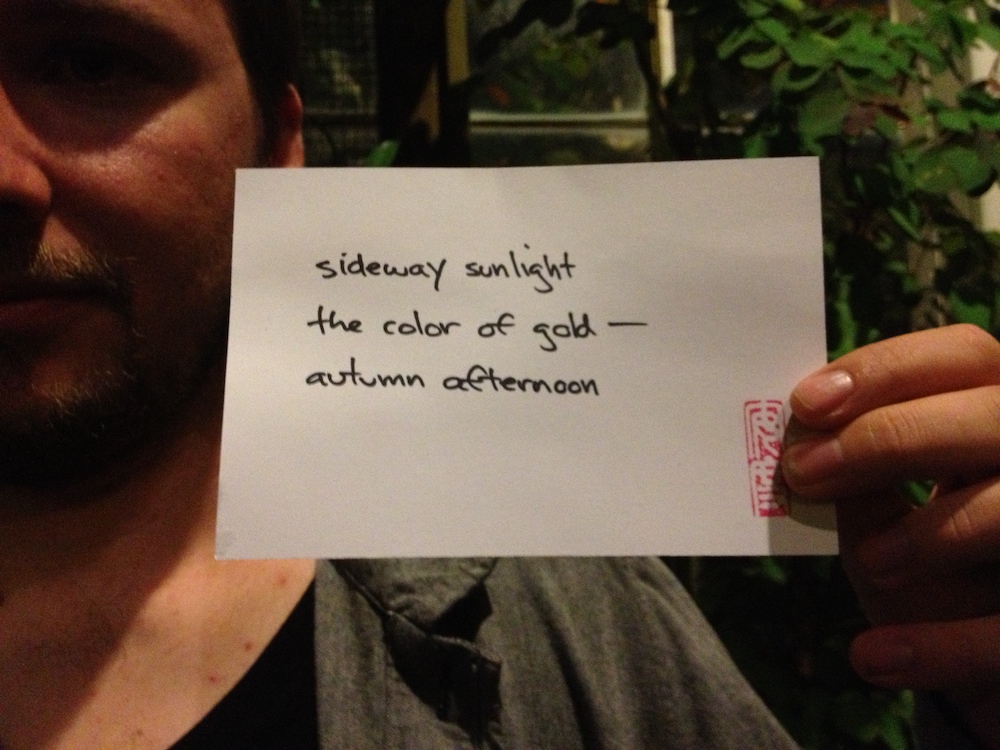 sideway sunlight
the color of gold —
autumn afternoon